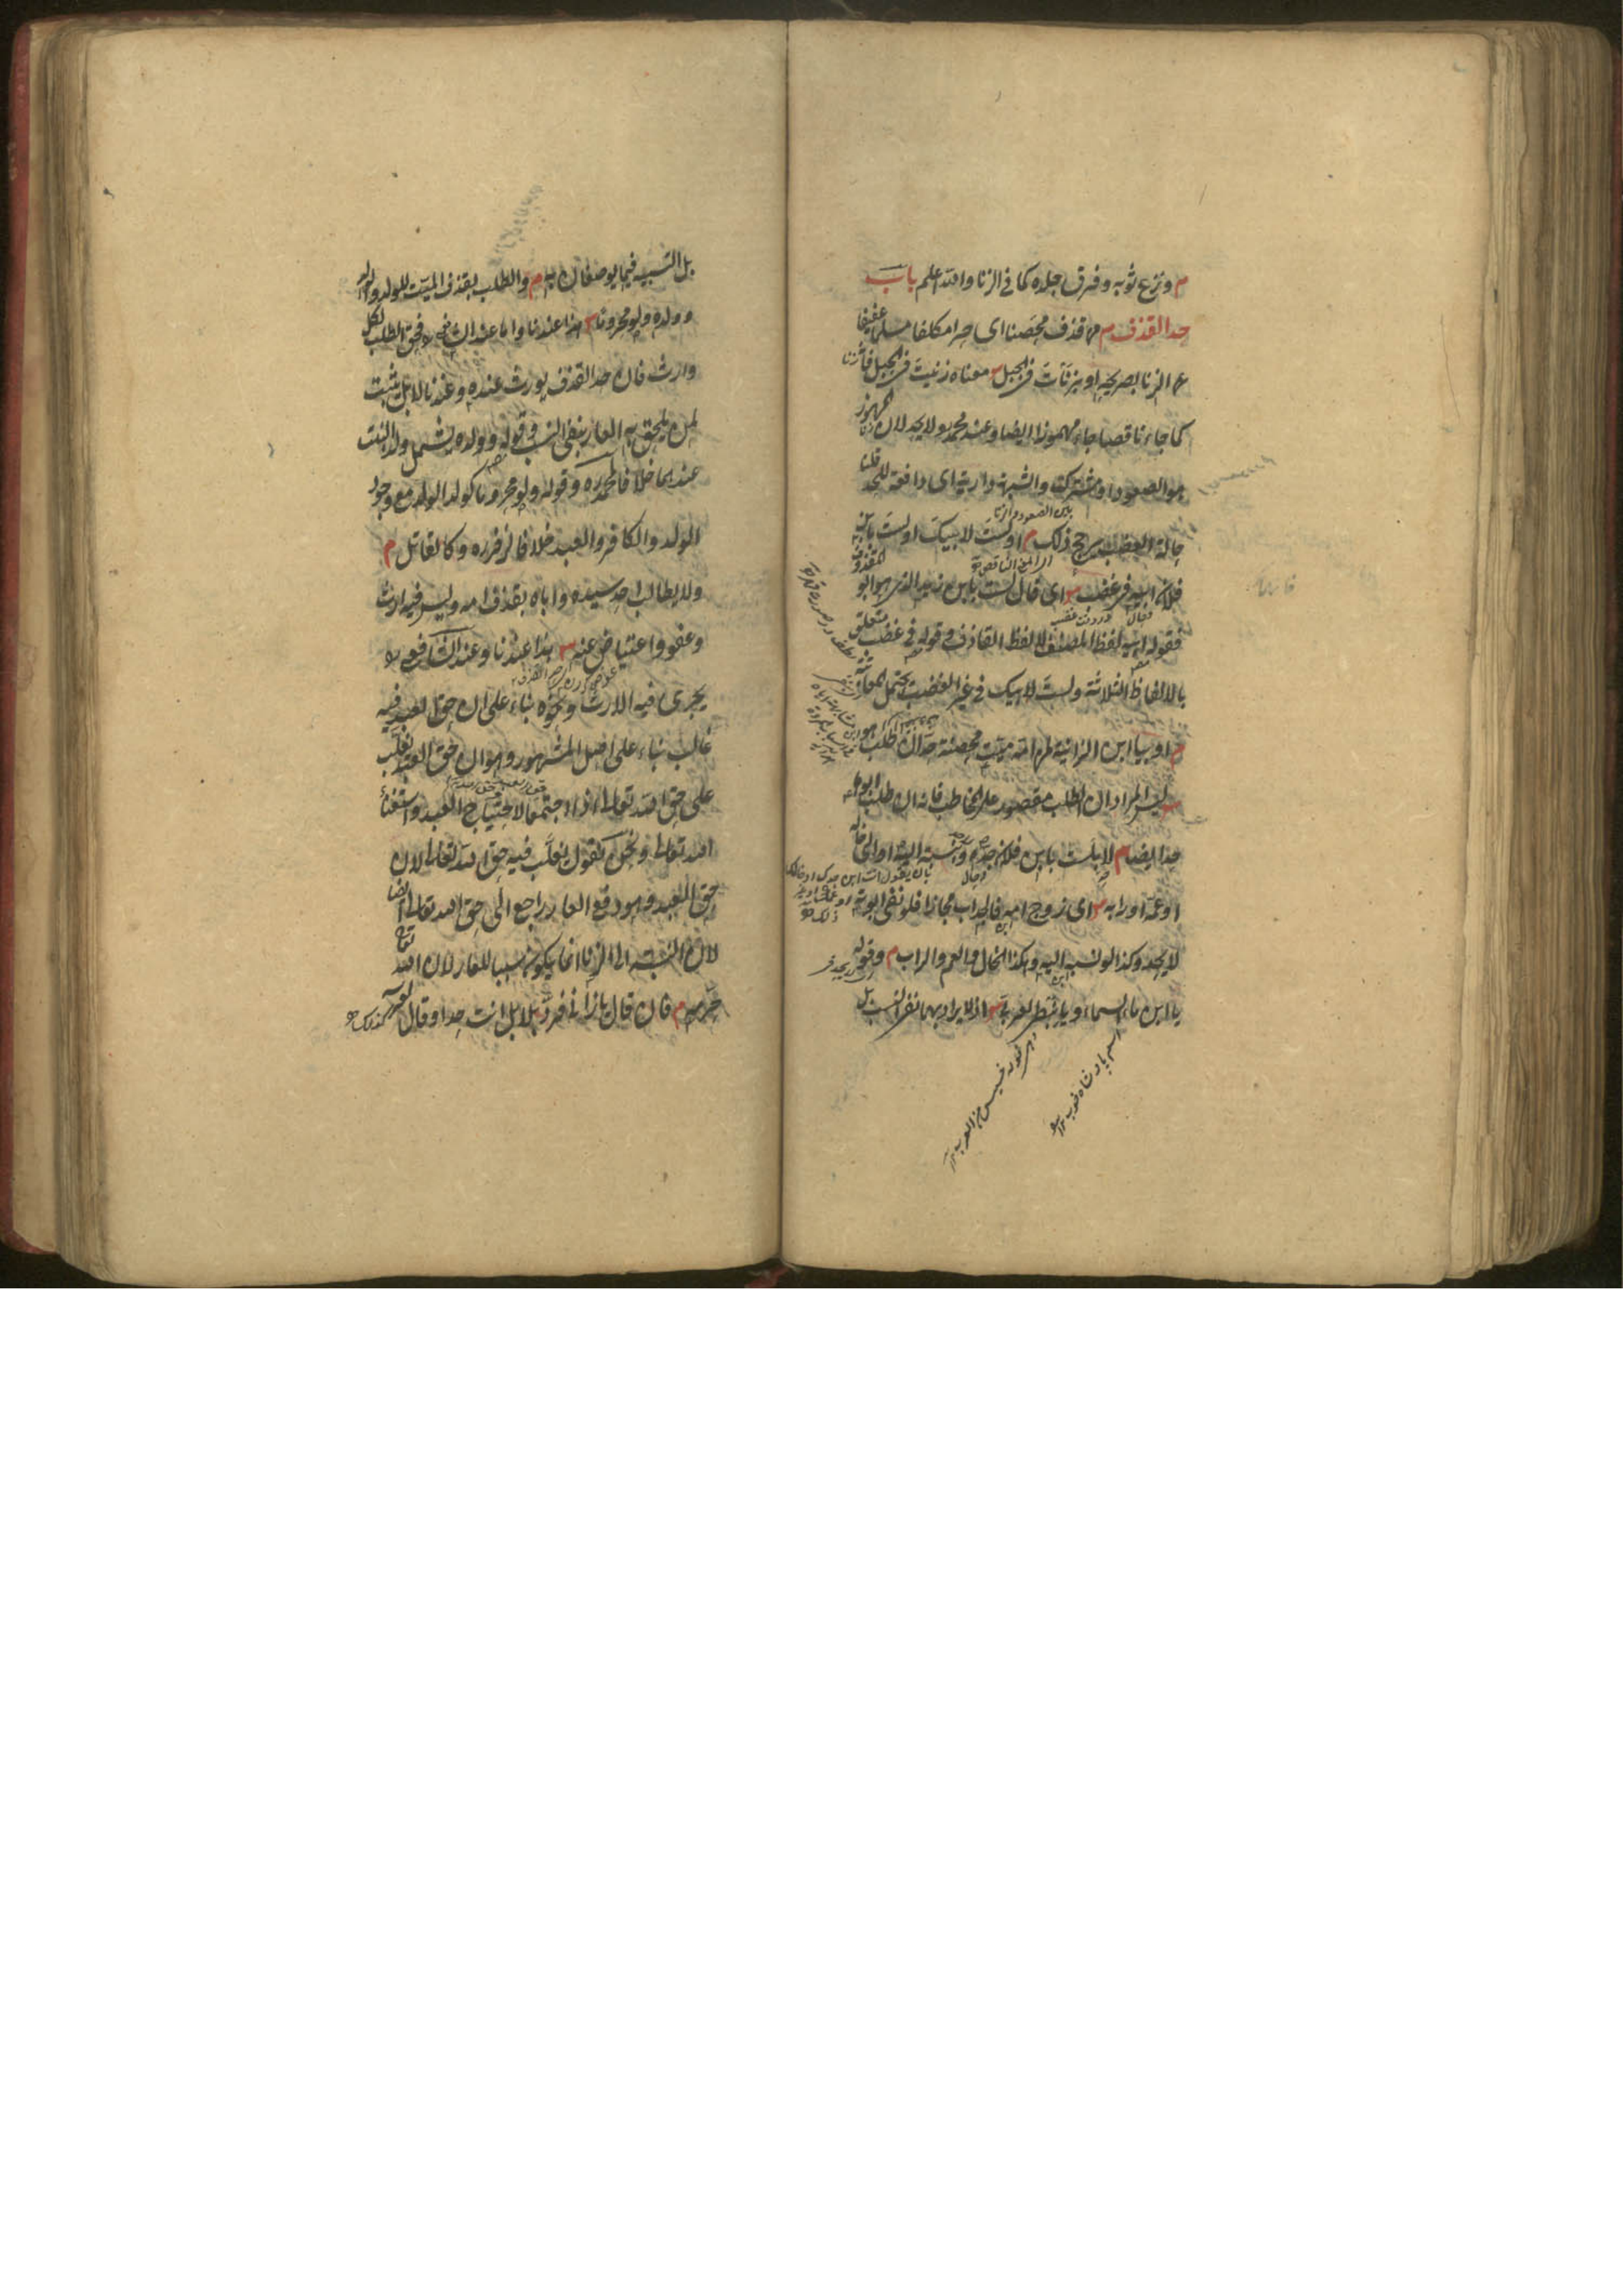 م ونزع ثوبه وفرق جلده كما في الزنا والله اعلم باب
حد القذف م من قذف محصنا اى حرا مكلفا مسلما عفيفا
عن الزنا بصريحه او بزنأت فى الجبل س معناه زنيت فى الجبل فان الزنا
كما جاء ناقصا جاء مهموزا ايضا وعند محمد ره لا يحد لان المهموز
هو الصعود او مشترك والشبهة دارئة اى دافعة للحد قلنا
حالة الغضب يرجح ذلك م او لست لابيك او لست بابن
بين الصعود والزنا
فلان ابيه فى غضب س اى قال لست بابن زيد الذى هو ابو المقذوف
فقوله ابيه لفظ المصنف لا لفظ القاذف وقوله فى غضب متعلق
بالالفاظ الثلاثة ولست لابيك فى غير الغضب يحتمل المعاتبة
م او بيا ابن الزانية لمن امه ميتة محصنة حد ان طلب هو
س ليس المراد ان الطلب مقصور على المخاطب فانه ان طلب ابوها
حد ايضا م لا بلست بابن فلان جده وبنسبته اليه او الى خاله
او عمه او رابه س اى زوج امه فالجد اب مجازا فلو نفى ابوته
لا يحد وكذا لو نسبه اليه وهكذا الخال والعم والراب م وقوله
يا ابن ماء السماء ويا نبطى لعربى س اذ لا يراد بهما نفى النسب بل
بل التشبيه فيما يوصفان به م والطلب بقذف الميت للولد والوالد
وولده ولو محروما س هذا عندنا واما عند الشافعى فحق الطلب لكل
وارث فان حد القذف يورث عنده وعندنا لا بل يثبت
لمن يلحق به العار بنفى النسب وقوله وولده يشمل ولد البنت
عندهما خلافا لمحمد ره وقوله ولو محروما كولد الولد مع وجود
الولد والكافر والعبد خلافا لزفر ره وكالقاتل م
ولا يطالب احد سيده واباه بقذف امه وليس فيه ارث
وعفو واعتياض عنه س هذا عندنا وعند الشافعى
يجرى فيه الارث ونحوه بناء على ان حق العبد فيه
غالب بناء على اصل المشهور وهو ان حق العبد يغلب
على حق الله تعالى اذا اجتمعا لاحتياج العبد واستغناء
الله تعالى ونحن نقول يغلب فيه حق الله تعالى لان
حق العبد وهو دفع العار راجع الى حق الله تعالى ايضا
لان النسبة الى الزنا انما يكون سببا للعار لان الله تعالى
حرمه م فان قال يا زانى فرد بلا بل انت حدا وقال لعرسه